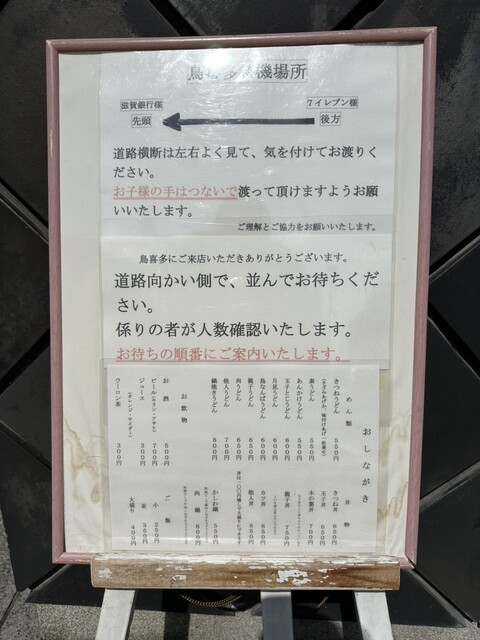 鳥喜多待機場所
滋賀銀行様
7イレブン様
先頭
後方
道路横断は左右よく見て、気を付けてお渡りく
ださい。
お子様の手はつないで渡って頂けますようお願
いいたします。
ご理解とご協力をお願いいたします。
鳥喜多にご来店いただきありがとうございます。
道路向かい側で、並んでお待ちくだ
さい。
係りの者が人数確認いたします。
お待ちの順番にご案内いたします。
おしながき
めん類
きつねうどん 550円
素うどん 550円
あんかけうどん 550円
玉子とじうどん 600円
月見うどん 600円
鳥なんばうどん 600円
親子うどん 650円
肉うどん 650円
他人うどん 700円
鍋焼きうどん 800円
お飲物
お酒 550円
ビール 700円
ジュース 300円
(オレンジ・サイダー)
ウーロン茶 300円
丼物
きつね丼 650円
玉子丼 650円
木の葉丼 700円
親子丼 750円
カツ丼 850円
他人丼 850円
かしわ鍋 550円
肉鍋 600円
ご飯
小 250円
並 350円
大盛り 400円